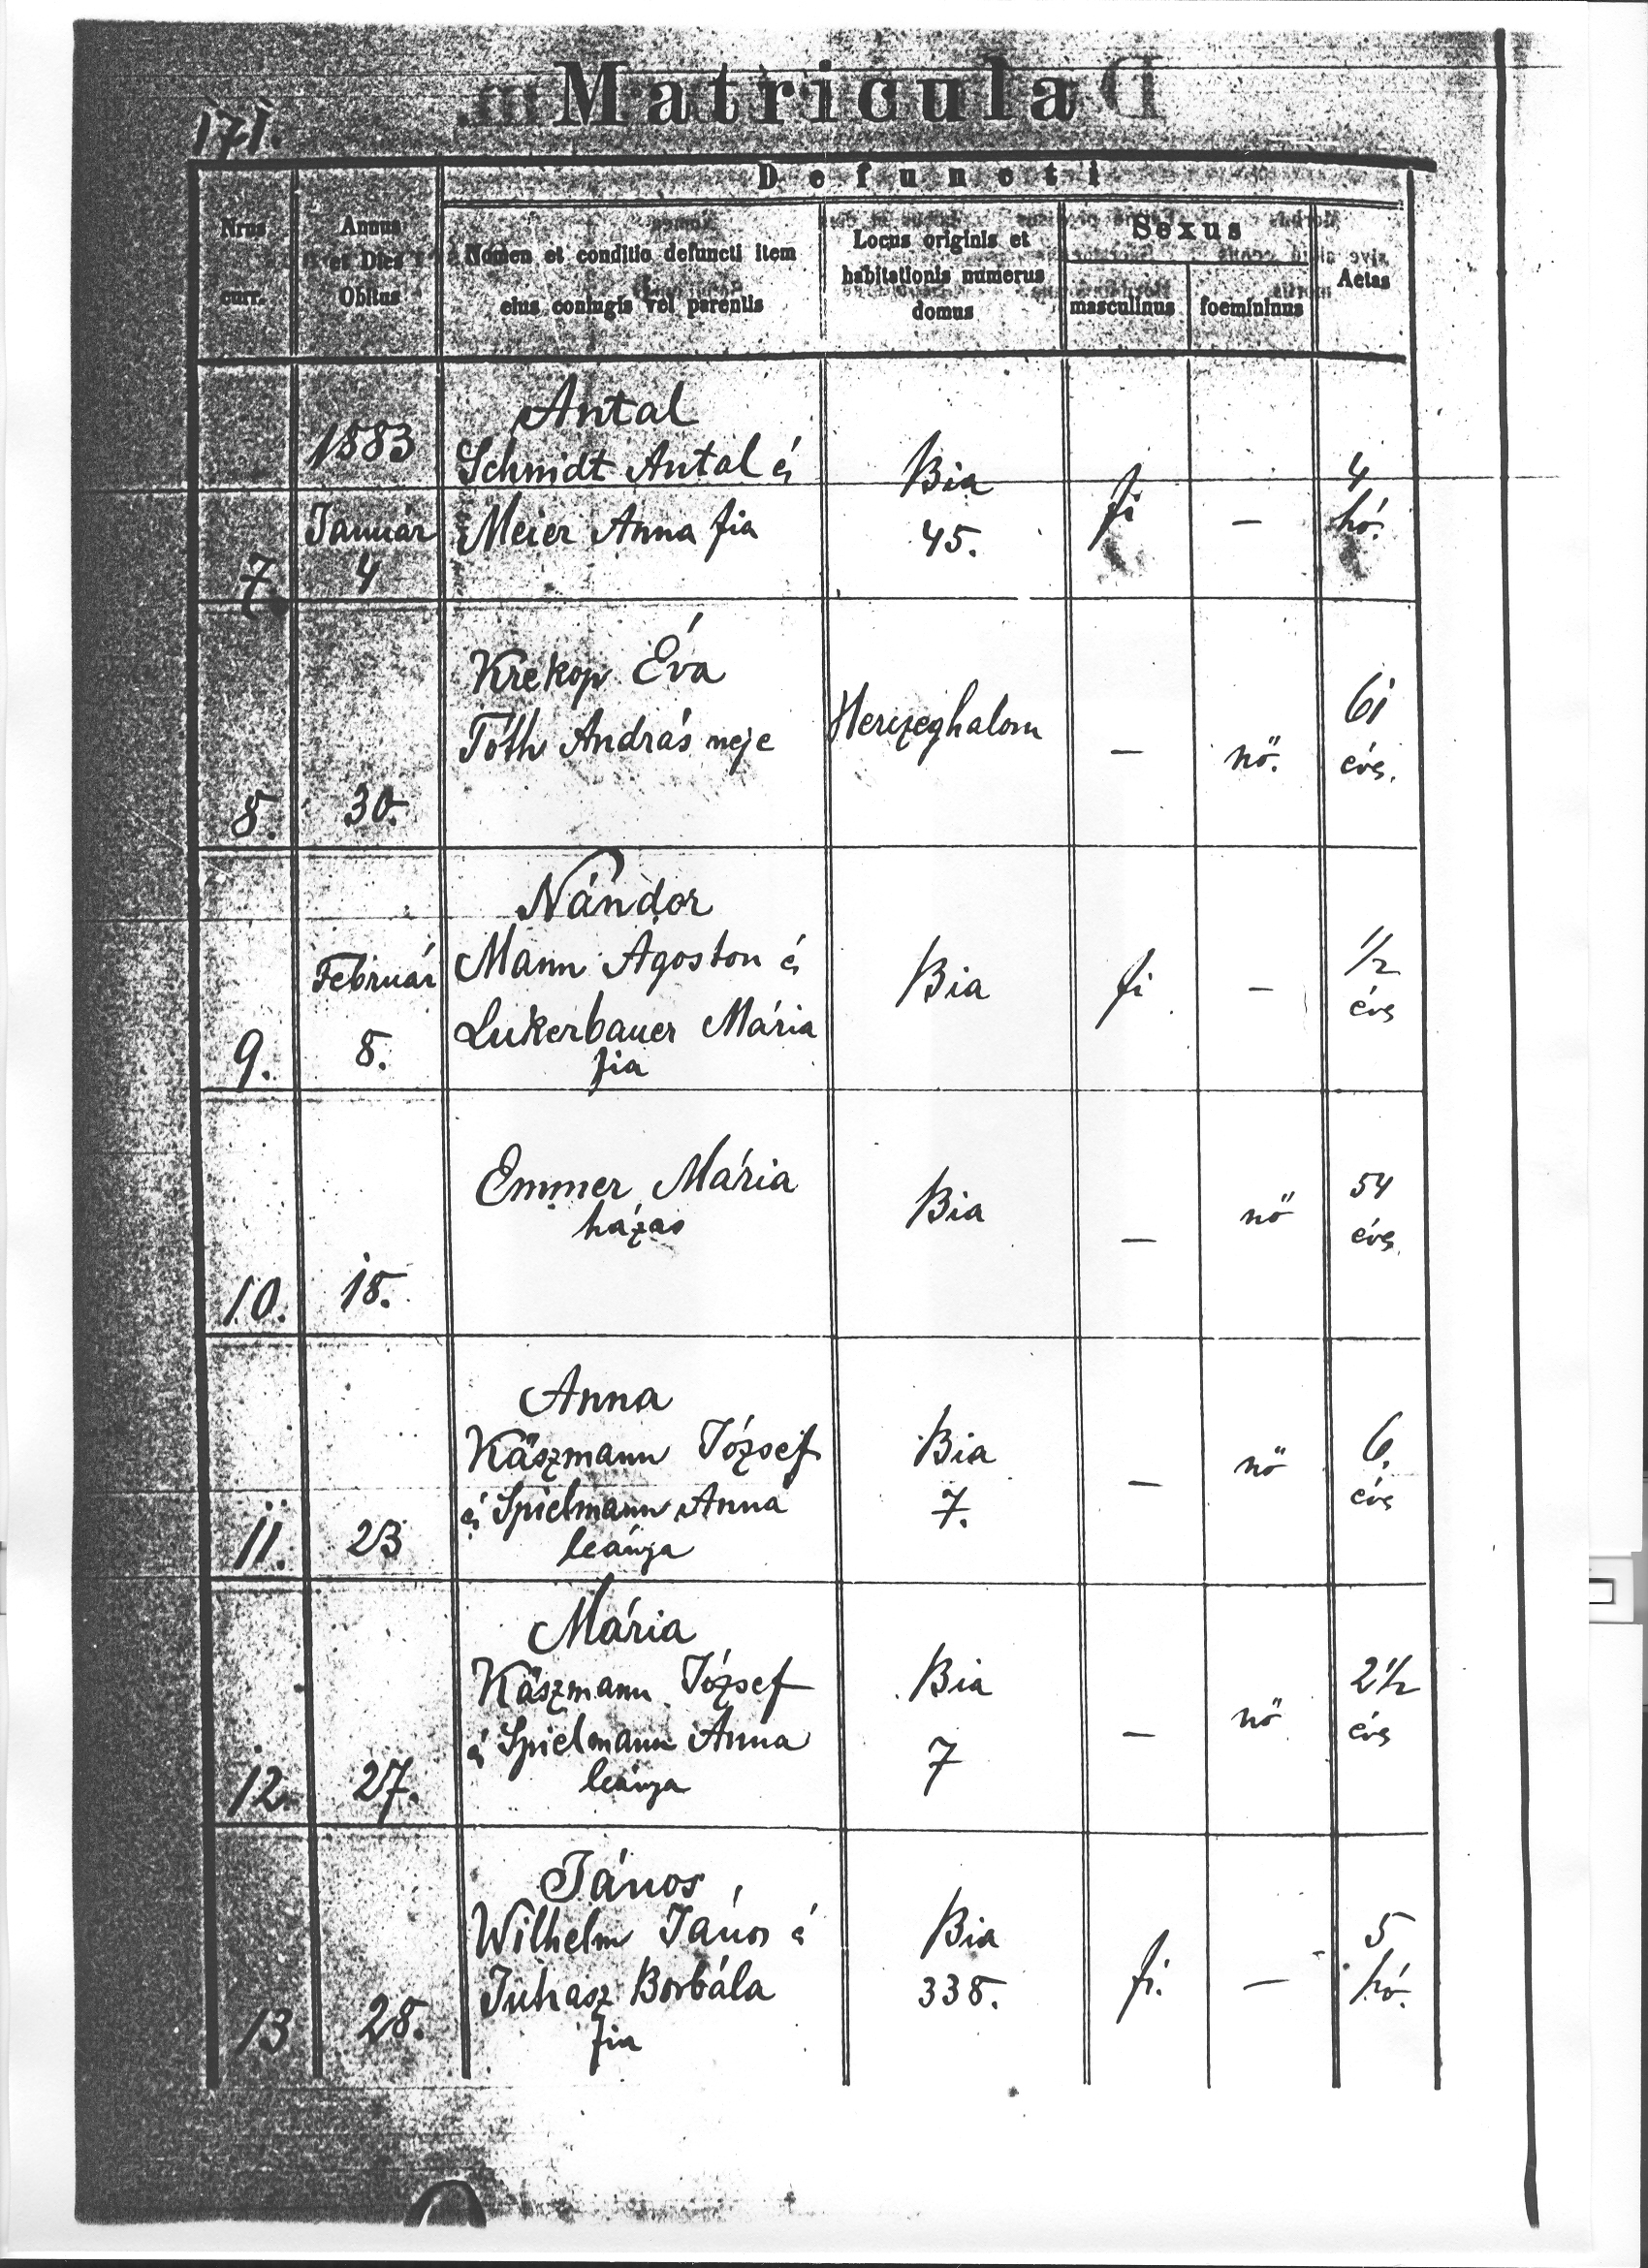 171.
Matricula
Defuncti
Nrus
curr.
Annus
et Dies
Obitus
Nomen et conditio defuncti item
eius coniugis vel parentis
Locus originis et
habitationis numerus
domus
Sexus
masculinus
foemininus
Aetas
7.
1883
Január
4
Antal
Schmidt Antal és
Meier Anna fia
Bia
45.
fi
—
4
hó.
8.
30.
Krekop Éva
Tóth András neje
Herczeghalom
—
nő.
61
éves.
9.
Február
8.
Nándor
Mann Ágoston és
Lukerbauer Mária
fia
Bia
fi
—
1/2
éves
10.
18.
Emmer Mária
házas
Bia
—
nő
54
éves
11.
23
Anna
Käszmann József
és Spielmann Anna
leánya
Bia
7.
—
nő
6.
éves
12.
27.
Mária
Käszmann József
és Spielmann Anna
leánya
Bia
7
—
nő
2 1/2
éves
13
28.
János
Wilhelm János és
Juhasz Borbála
fia
Bia
338.
fi.
—
5
hó.